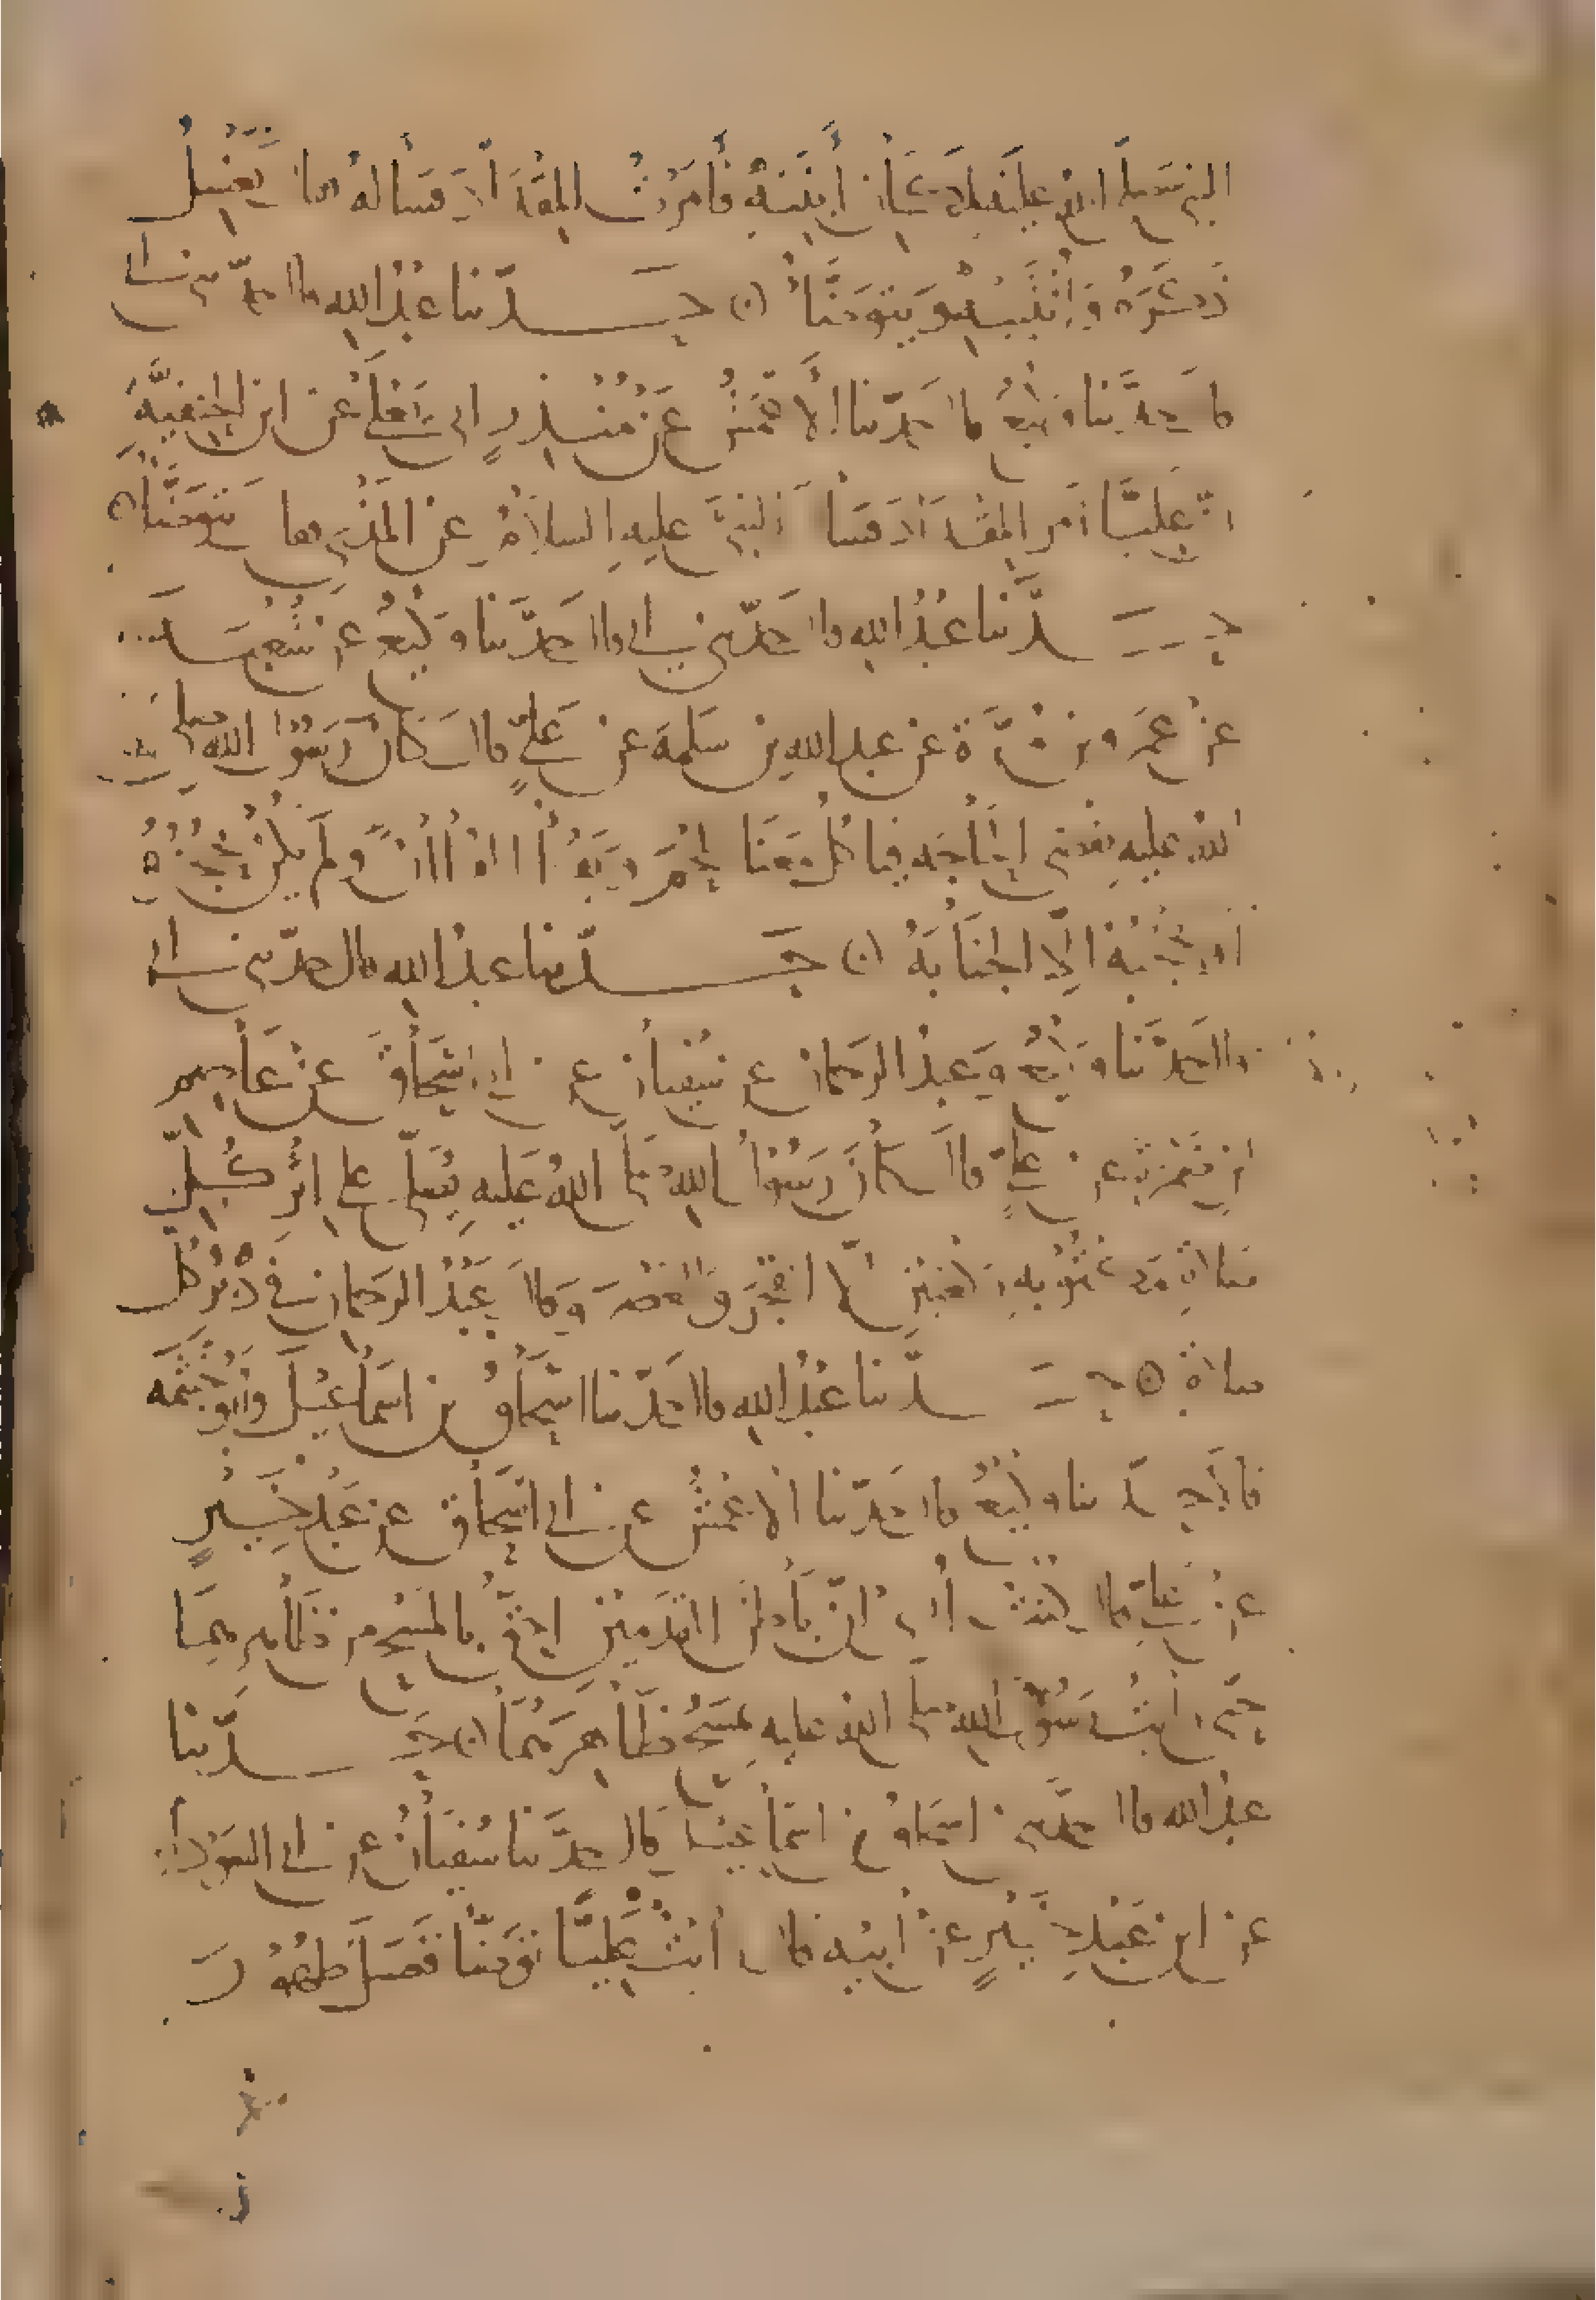 النبي صلى الله عليه لمكان ابنته فأمرت المقداد فسأله فقال يغسل
ذكره وأنثييه ويتوضأ حدثنا عبد الله قال حدثني أبي
قال حدثنا وكيع قال حدثنا الأعمش عن منذر أبي يعلى عن ابن الحنفية
أن عليا أمر المقداد فسأل النبي عليه السلام عن المذي فقال يتوضأ
حدثنا عبد الله قال حدثني أبي قال حدثنا وكيع عن شعبة
عن عمرو بن مرة عن عبد الله بن سلمة عن علي قال كان رسول الله صلى
الله عليه يقضي الحاجة فيأكل معنا اللحم ويقرأ القرآن ولم يكن يحجزه
أو يحجبه إلا الجنابة حدثنا عبد الله قال حدثني أبي
قال حدثنا وكيع وعبد الرحمان عن سفيان عن أبي إسحاق عن عاصم
بن ضمرة عن علي قال كان رسول الله صلى الله عليه يصلي على إثر كل
صلاة مكتوبة ركعتين إلا الفجر والعصر وقال عبد الرحمان في دبر كل
صلاة حدثنا عبد الله قال حدثنا إسحاق بن إسماعيل وأبو خيثمة
قالا حدثنا وكيع قال حدثنا الأعمش عن أبي إسحاق عن عبد خير
عن علي قال كنت أرى أن باطن القدمين أحق بالمسح من ظاهرهما
حتى رأيت رسول الله صلى الله عليه يمسح ظاهرهما حدثنا
عبد الله قال حدثني إسحاق بن إسماعيل قال حدثنا سفيان عن أبي السوداء
عن ابن عبد خير عن أبيه قال رأيت عليا توضأ فغسل ظهور